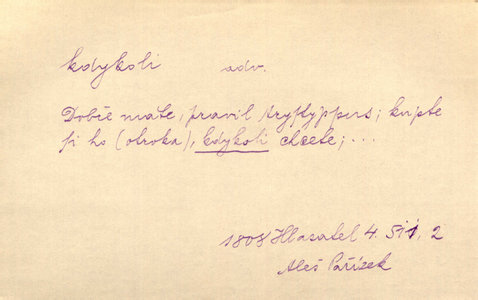 kdykoli adv.
Dobře máte, pravil Aryſtyppus; kupte
ſi ho (otroka), kdykoli chcete; ...
1808 Hlasatel 4. 2
Aleš Pařízek